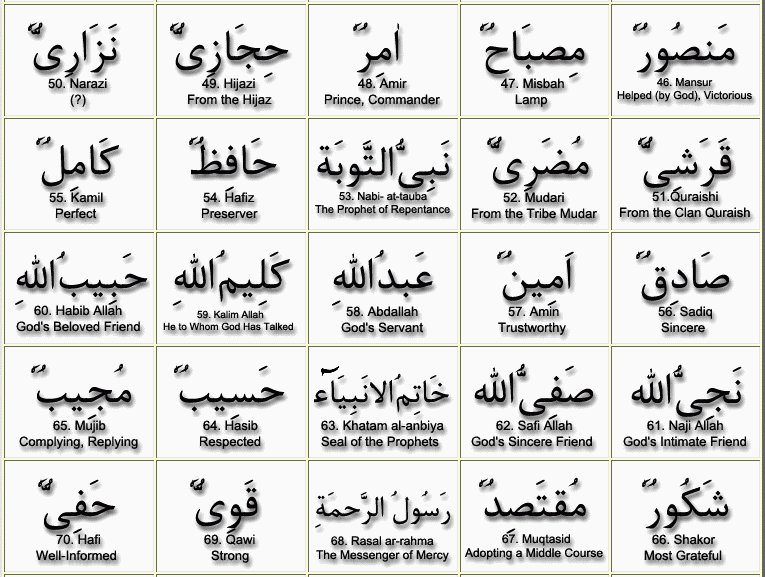 مَنصُورٌ
46. Mansur
Helped (by God), Victorious
مِصبَاحٌ
47. Misbah
Lamp
اٰمِرٌ
48. Amir
Prince, Commander
حِجَازِىٌّ
49. Hijazi
From the Hijaz
نَزَارِىٌّ
50. Narazi
(?)
قَرَشِىٌّ
51.Quraishi
From the Clan Quraish
مُضَرِىٌّ
52. Mudari
From the Tribe Mudar
نَبِىُّ التَّوبَة
53. Nabi- at-tauba
The Prophet of Repentance
حَافِظٌ
54. Hafiz
Preserver
كَامِلٌ
55. Kamil
Perfect
صَادِقٌ
56. Sadiq
Sincere
اَمِينٌ
57. Amin
Trustworthy
عَبدُ اللهِ
58. Abdallah
God's Servant
كَلِيمُ اللهِ
59. Kalim Allah
He to Whom God Has Talked
حَبِيبُ اللهِ
60. Habib Allah
God's Beloved Friend
نَجِىُّ الله
61. Naji Allah
God's Intimate Friend
صَفِىُّ الله
62. Safi Allah
God's Sincere Friend
خَاتِمُ الانبِيَآء
63. Khatam al-anbiya
Seal of the Prophets
حَسِيبٌ
64. Hasib
Respected
مُجِيبٌ
65. Mujib
Complying, Replying
شَكُورٌ
66. Shakor
Most Grateful
مُقتَصِدٌ
67. Muqtasid
Adopting a Middle Course
رَسُولُ الرَّحمَةِ
68. Rasal ar-rahma
The Messenger of Mercy
قَوِىٌّ
69. Qawi
Strong
حَفِىٌّ
70. Hafi
Well-Informed